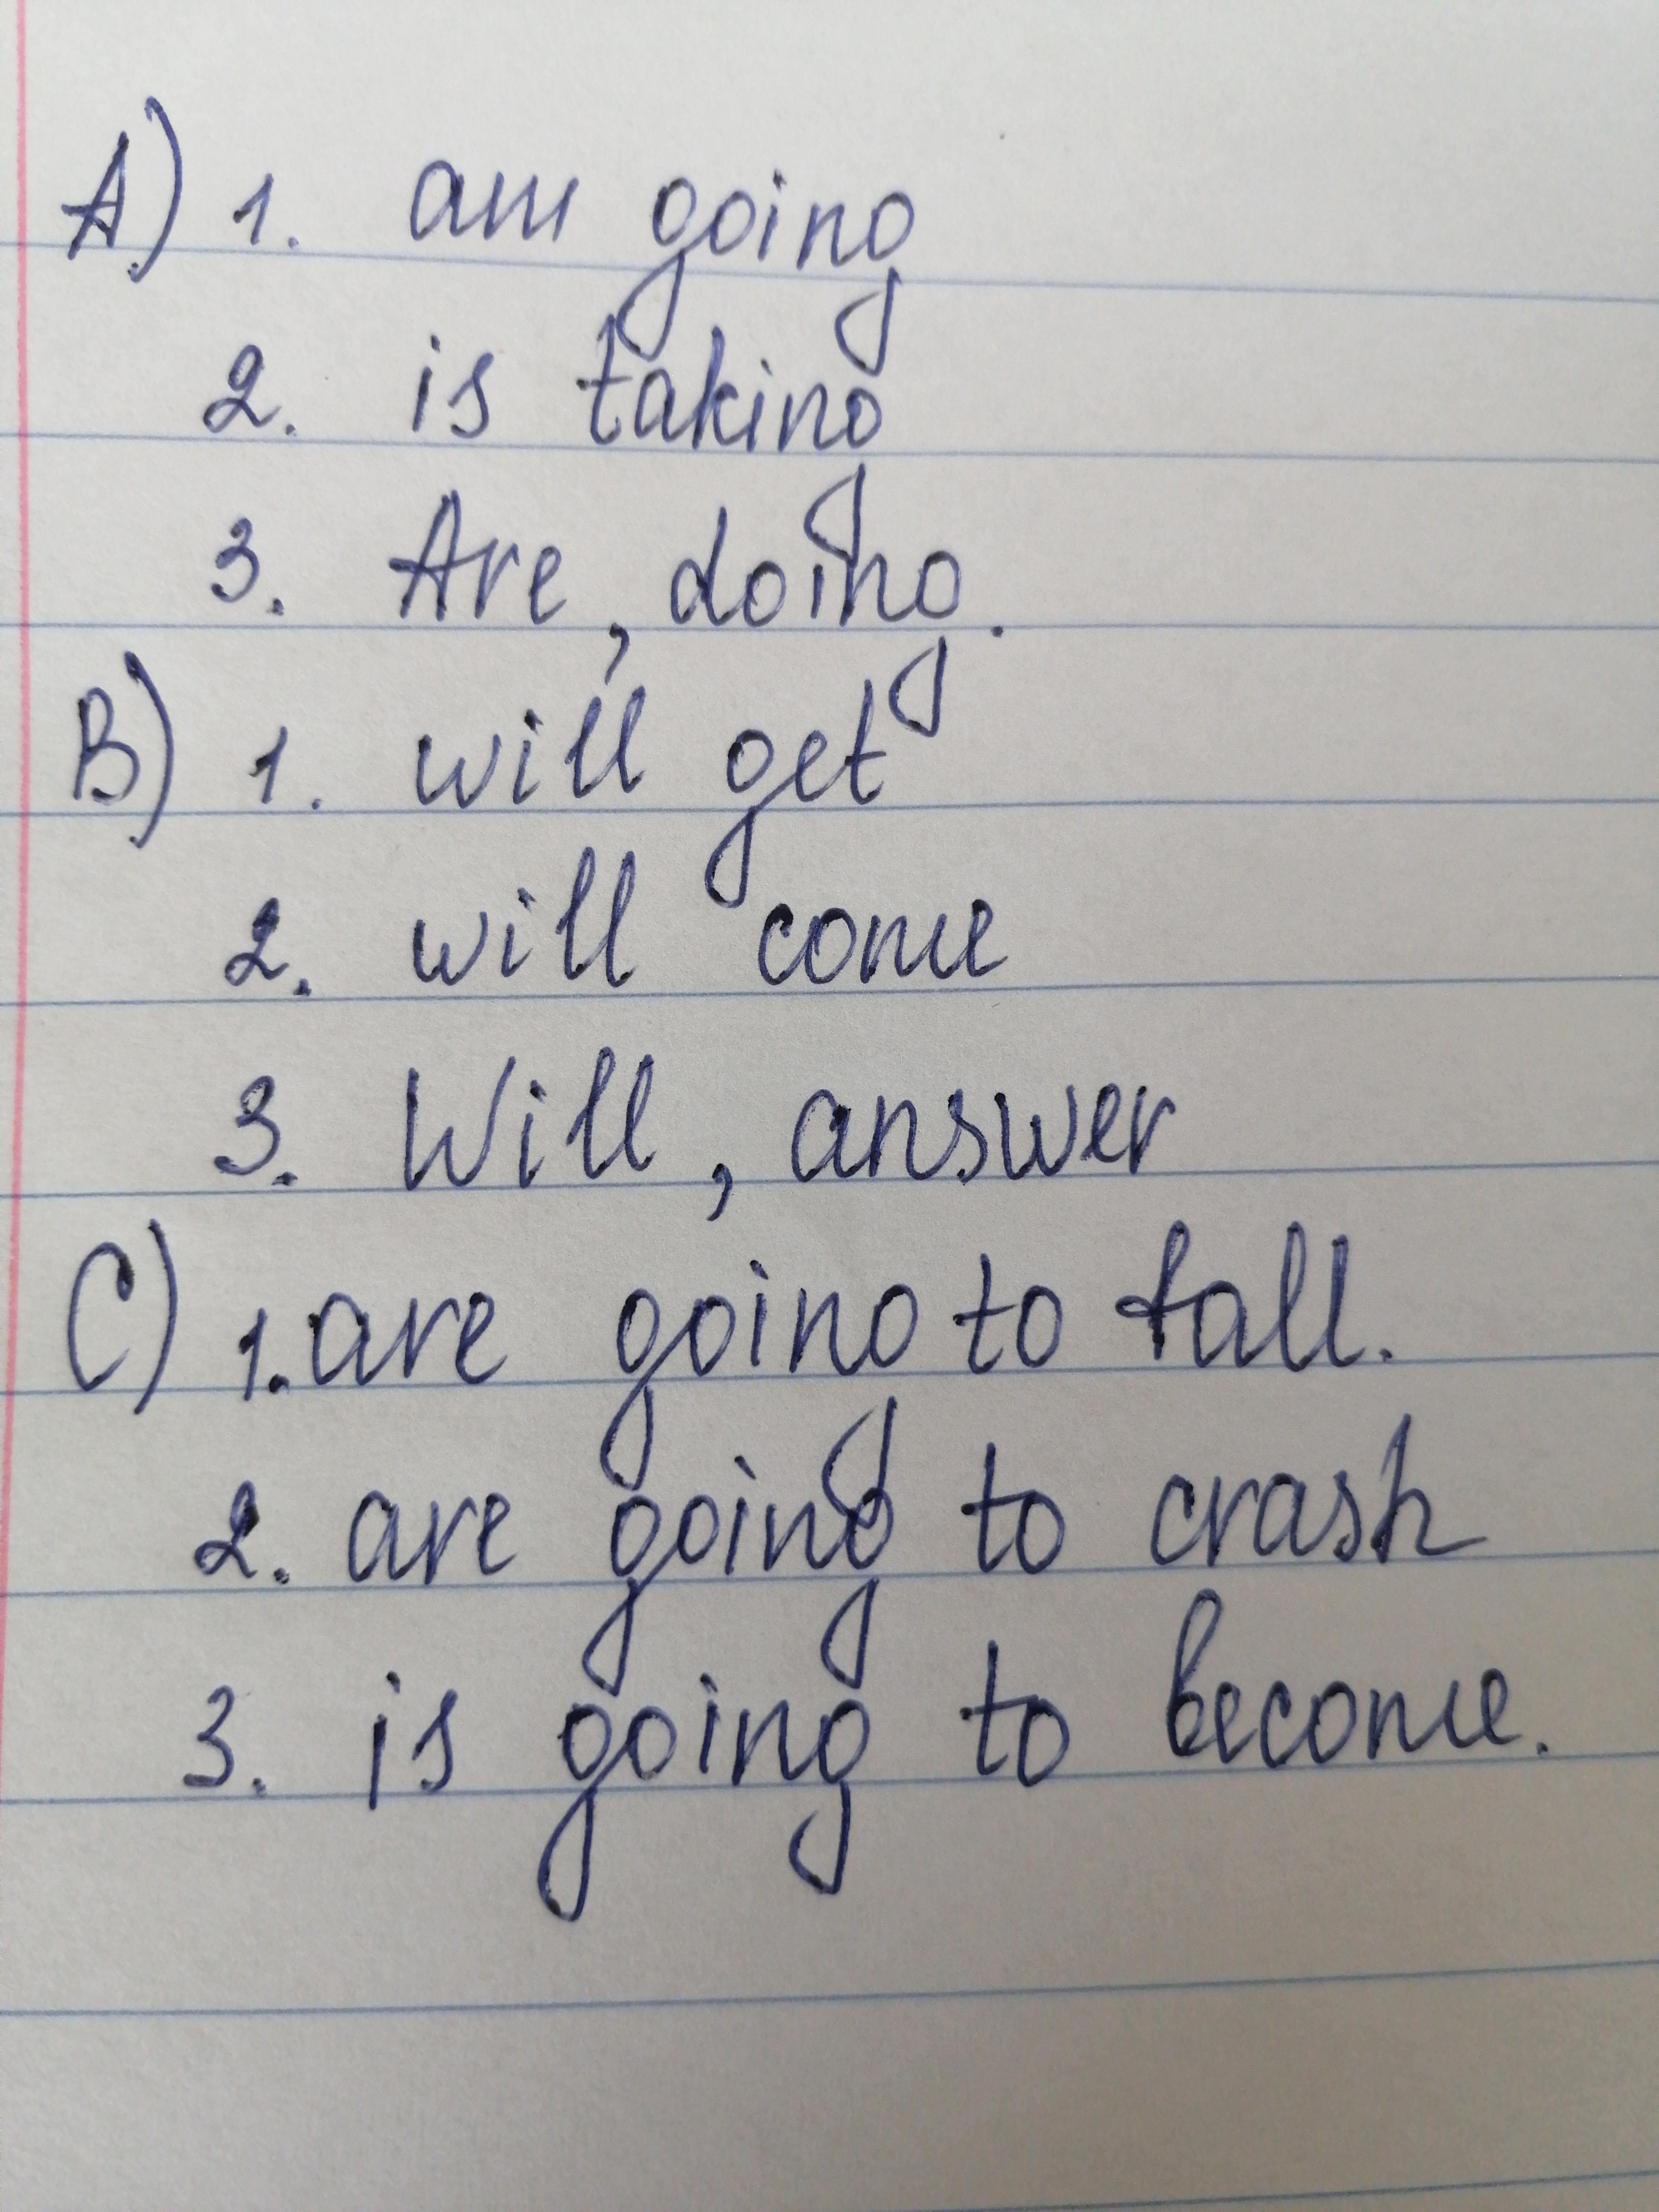 A) 1. am going
2. is taking
3. Are, doing.
B) 1. will get
2. will come
3. Will, answer
C) 1. are going to fall.
2. are going to crash
3. is going to become.